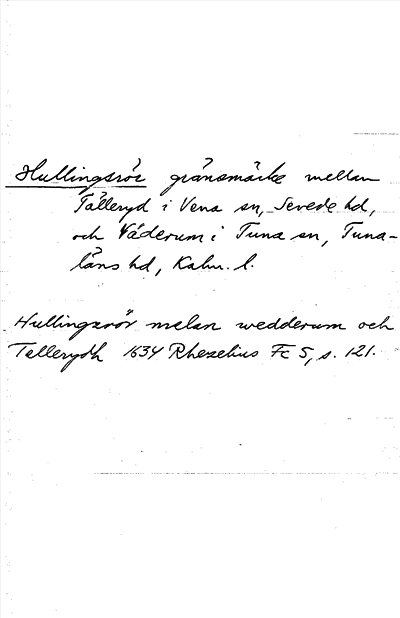 Hullingsrör gränsmärke mellan
Tälleryd i Vena sn, Sevede hd,
och Väderum i Tuna sn, Tuna-
läns hd, Kalm. l.
Hullingzrör melan wedderum och
Tellerydh 1634 Rhezelius Fc 5, s. 121.